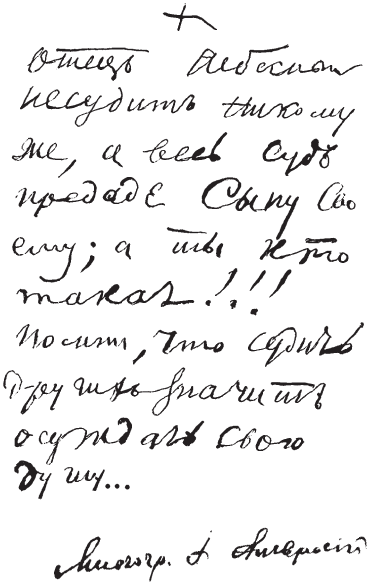 Отецъ Небесный
несудитъ никому
же, а весь судъ
предаде Сыну Сво
ему; а ты кто
такая!!!
Помни, что судить
другихъ значитъ
осуждать свою
душу...
Многогр. А Амвросій